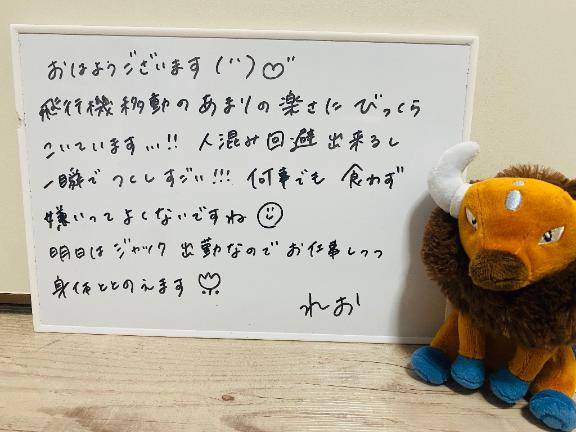 おはようございます(¨)♡"
飛行機移動のあまりの楽さにびっくら
こいています...!! 人混み回避出来るし
一瞬でつくしすごい!!! 何事でも食わず
嫌いってよくないですね☺
明日はジャック出勤なのでお仕事しつつ
身体ととのえます
れお